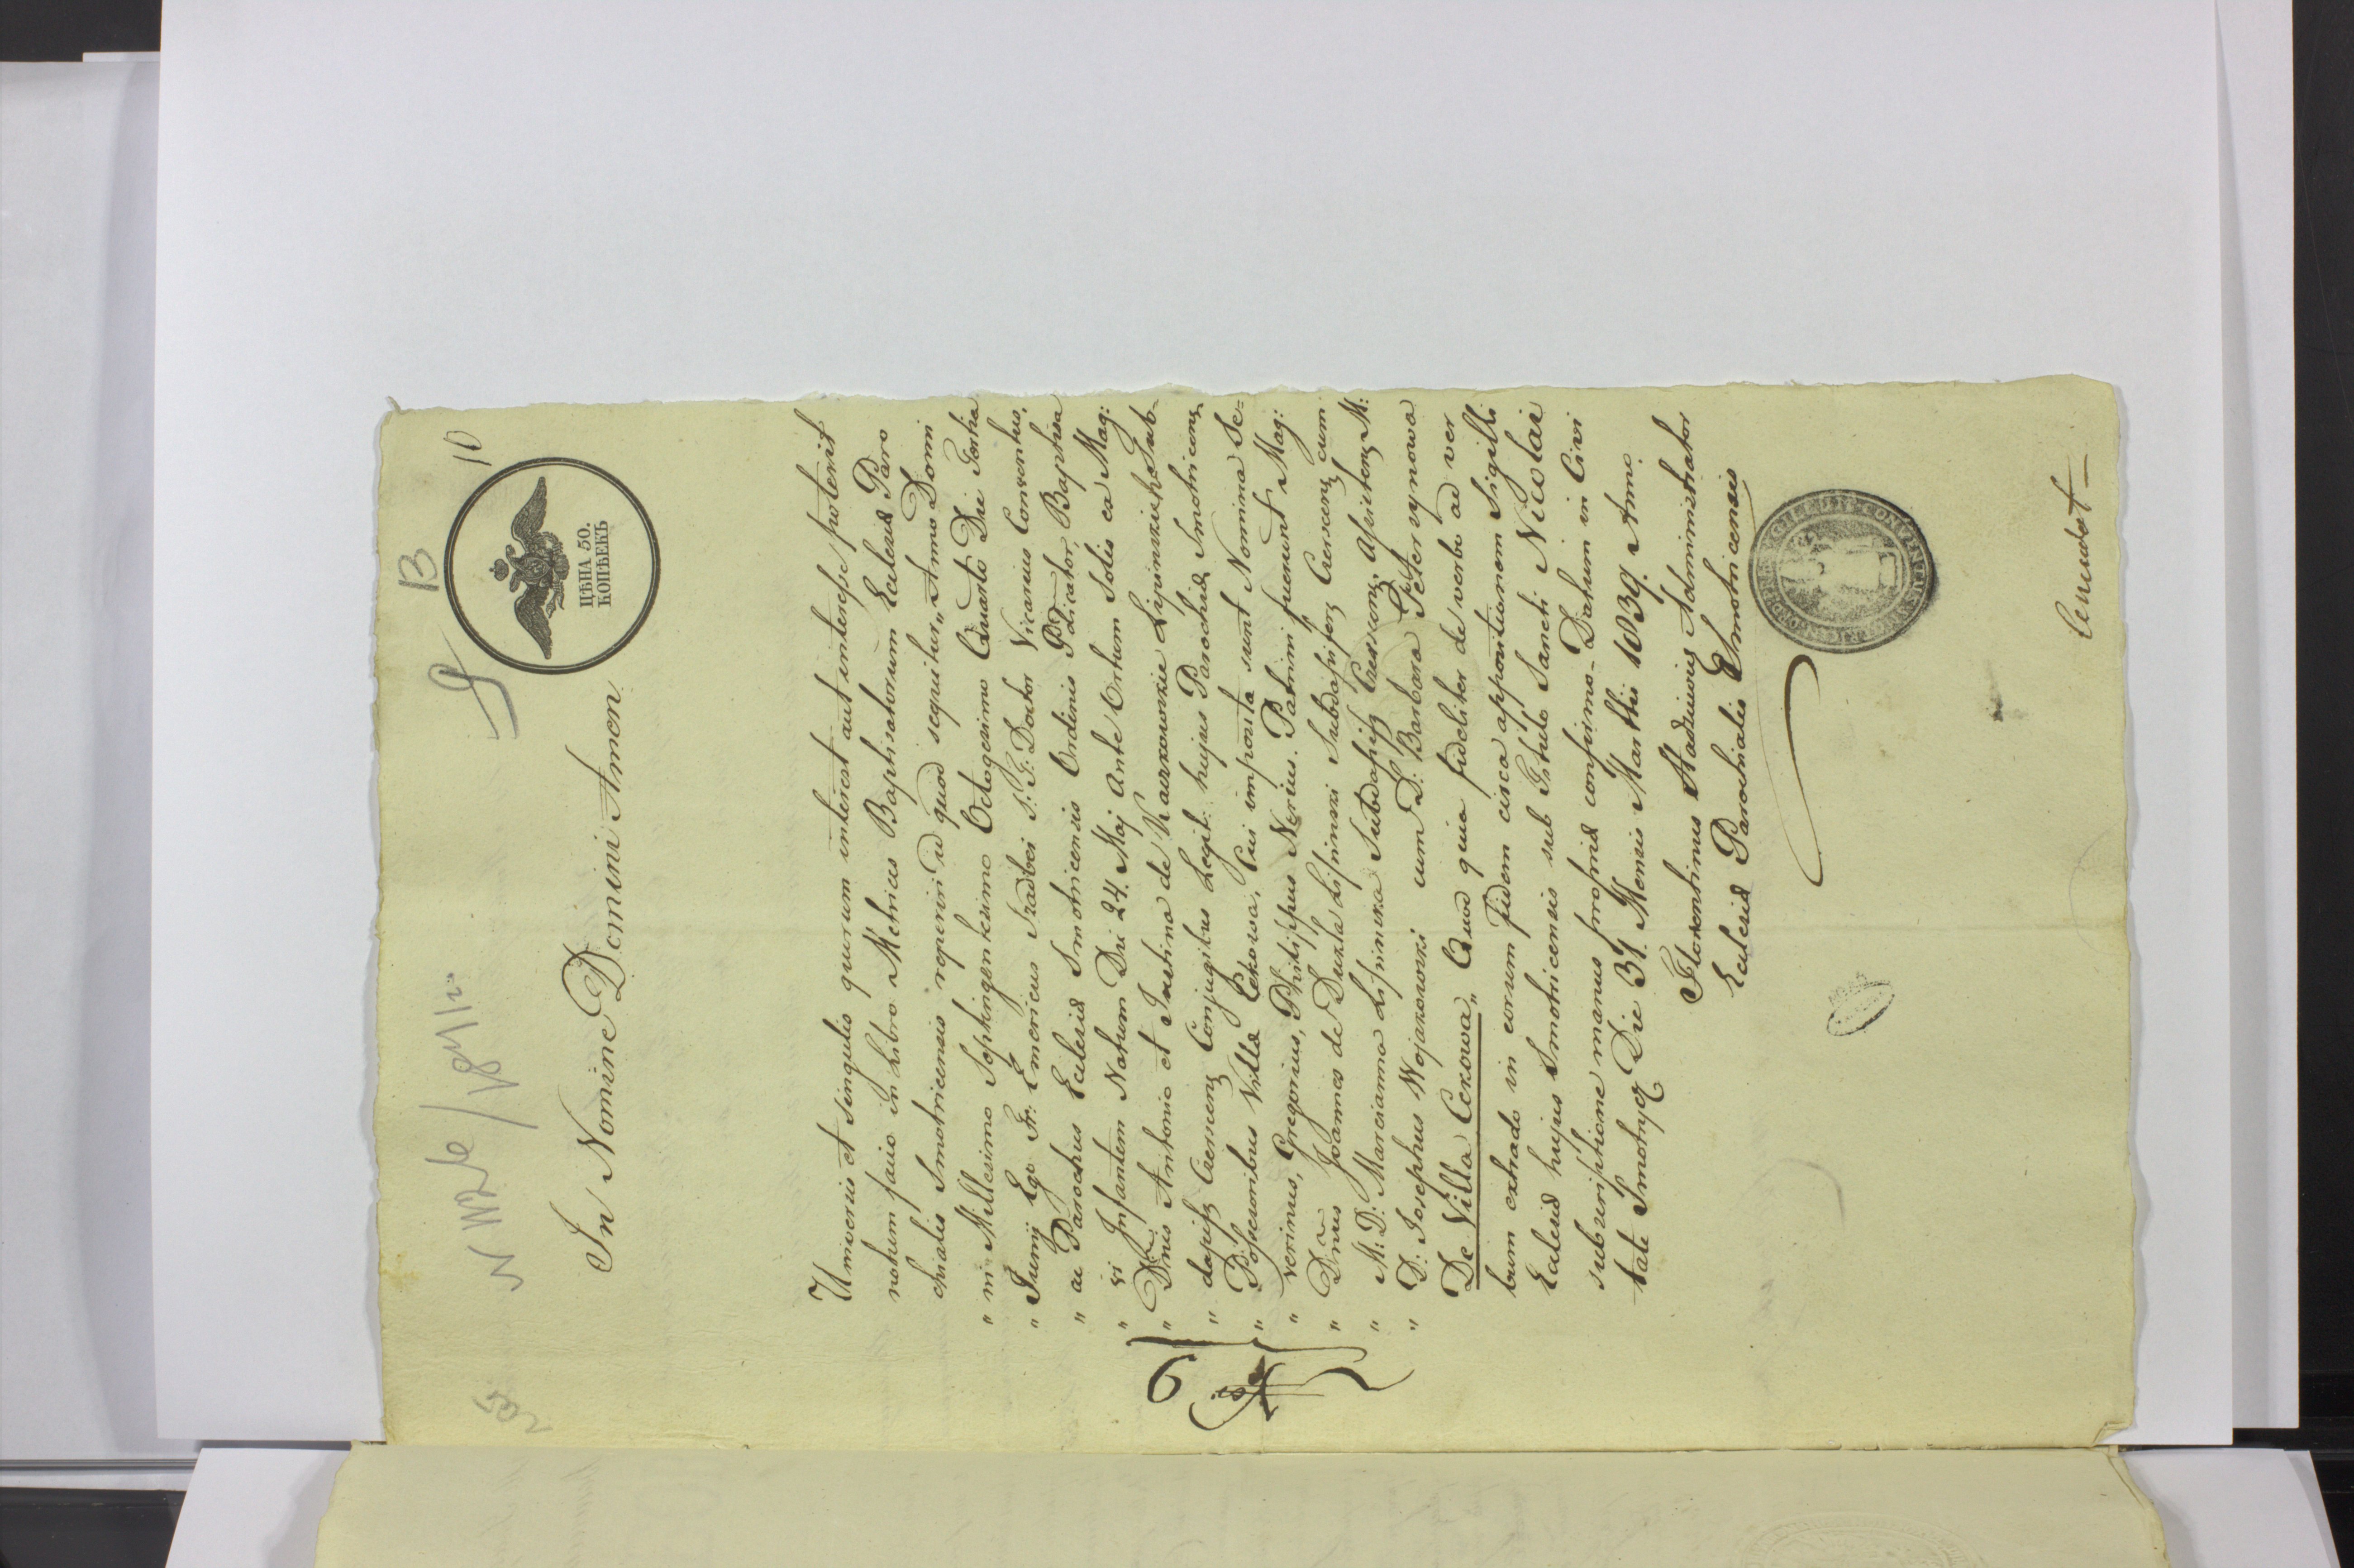 B
10
ЦѢНА 50.
КОПѢЕКЪ
In Nomine Domini Amen
Universis et singulis quorum interest aut interesse poterit
notum facio in Libro Metrices Baptisatorum Eclesiæ Paro
chialis Smotricensis reperiri id quod sequitur „ Anno Domi
„ ni Millesimo Septingentesimo Octogesimo Quarto Die Tertia
„ Junij Ego Fr. Emericus S: T: Doctor Vicarius Conventus,
„ ac Parochus Eclesiæ Smotricensis Ordinis Prædicator, Baptisa
„ vi Infantem Natum Die 24. Maj Ante Ortum Solis ex Mag:
„ Dnis Antonio et Justina de Sub-
„ dapif. Conjugibus Legit: hujus Parochiæ Smotricens,
„ Possessoribus Villæ Cekowa, Cui imposita sunt Nomina Se=
„ verinus, Gregorius, Philippus Nerius. Patrini fuerunt Mag:
„ Dnus Joannes de Lipinski Subdapifer cum
„ M: D: Marcianna Lipinska M:
„ D: Josephus Wojakowski cum D: Barbara
De Villa Cekowa„ Quod quia fideliter de verbo ad ver
bum extrado in eorum Fidem circa appositionem Sigilli
Eclesiæ hujus Smotricensis sub Titulo Sancti Nicolai
subscriptione manus propriæ confirmo - Datum in Civi
tate Smotrycz Die 31. Mensis Martii 1839. Anno.
Florentinus Administrator
Eclesiæ Parochialis Smotricensis
6